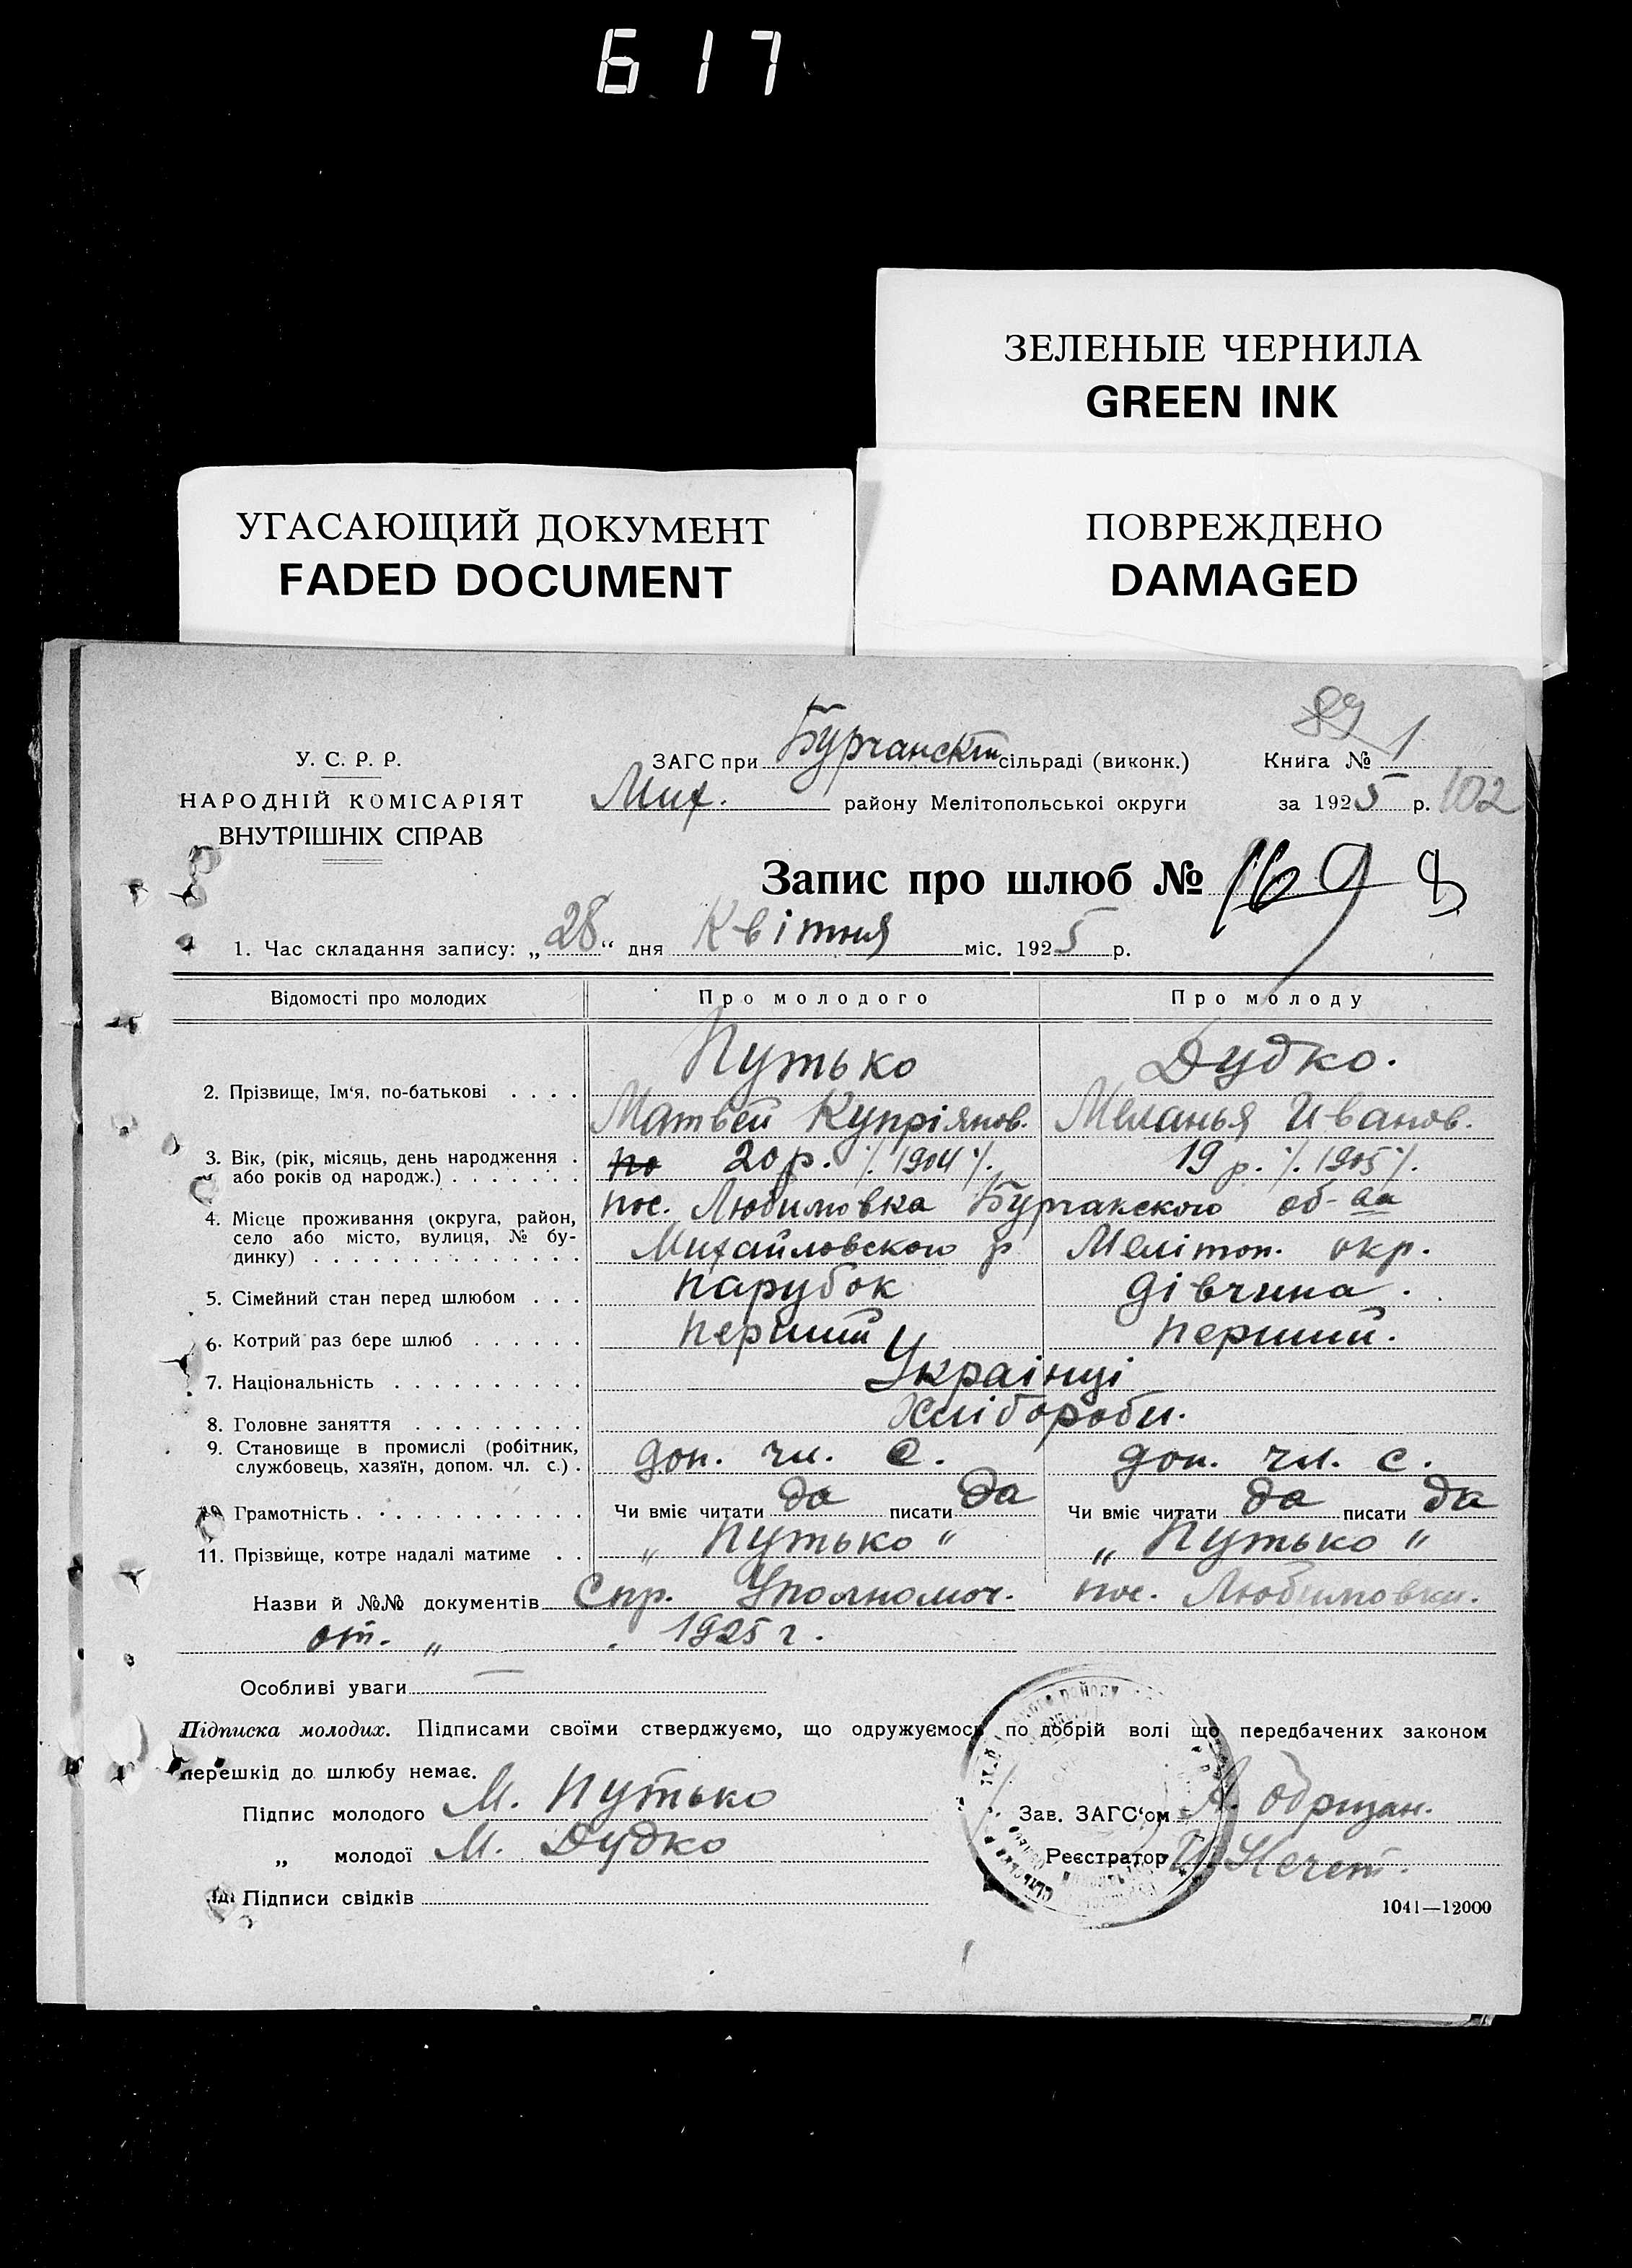 617
ЗЕЛЕНЫЕ ЧЕРНИЛА
GREEN INK
УГАСАЮЩИЙ ДОКУМЕНТ
FADED DOCUMENT
ПОВРЕЖДЕНО
DAMAGED
89 1
У. С. Р. Р.
НАРОДНІЙ КОМІСАРІЯТ
ВНУТРІШНІХ СПРАВ
ЗАГС при Бурчанскій сільраді (виконк.) Книга №
Мих. району Мелітопольської округи за 1925 р. 102
Запис про шлюб № 169 8
1. Час складання запису: „28“ дня Квітня міс. 1925 р.
Відомості про молодих Про молодого Про молоду
Путько Дудко.
2. Прізвище, Ім'я, по-батькові . . . .
Матвей Купріянов. Меланья Иванов.
3. Вік, (рік, місяць, день народження . по 20 р. /. 1904 /. 19 р. /. 1905 /.
або років од народж.) . . . . . . .
4. Місце проживання (округа, район, пос. Любимовка Бурчакского об-ва
село або місто, вулиця, № бу- Михайловского р Мелітоп. окр.
динку) . . . . . . . . . . . . . .
5. Сімейний стан перед шлюбом . . . парубок дівчина.
6. Котрий раз бере шлюб . . . . . . перший перший.
7. Національність . . . . . . . . . . Українці
8. Головне заняття . . . . . . . . . Хлібороби.
9. Становище в промислі (робітник, доп. чл. с. доп. чл. с.
службовець, хазяїн, допом. чл. с.) .
Грамотність . . . . . . . . . . . . Чи вміє читати да писати да Чи вміє читати да писати да
11. Прізвище, котре надалі матиме . . „ Путько “ „ Путько “
Назви й №№ документів Спр. Уполномоч. пос. Любимовки.
от. „ . 1925 г.
Особливі уваги —
Підписка молодих. Підписами своїми стверджуємо, що одружуємось по добрій волі що передбачених законом
перешкід до шлюбу немає.
Підпис молодого М. Путько Зав. ЗАГС'ом А.
„ молодої М. Дудко Реєстратор
Підписи свідків
1041—12000